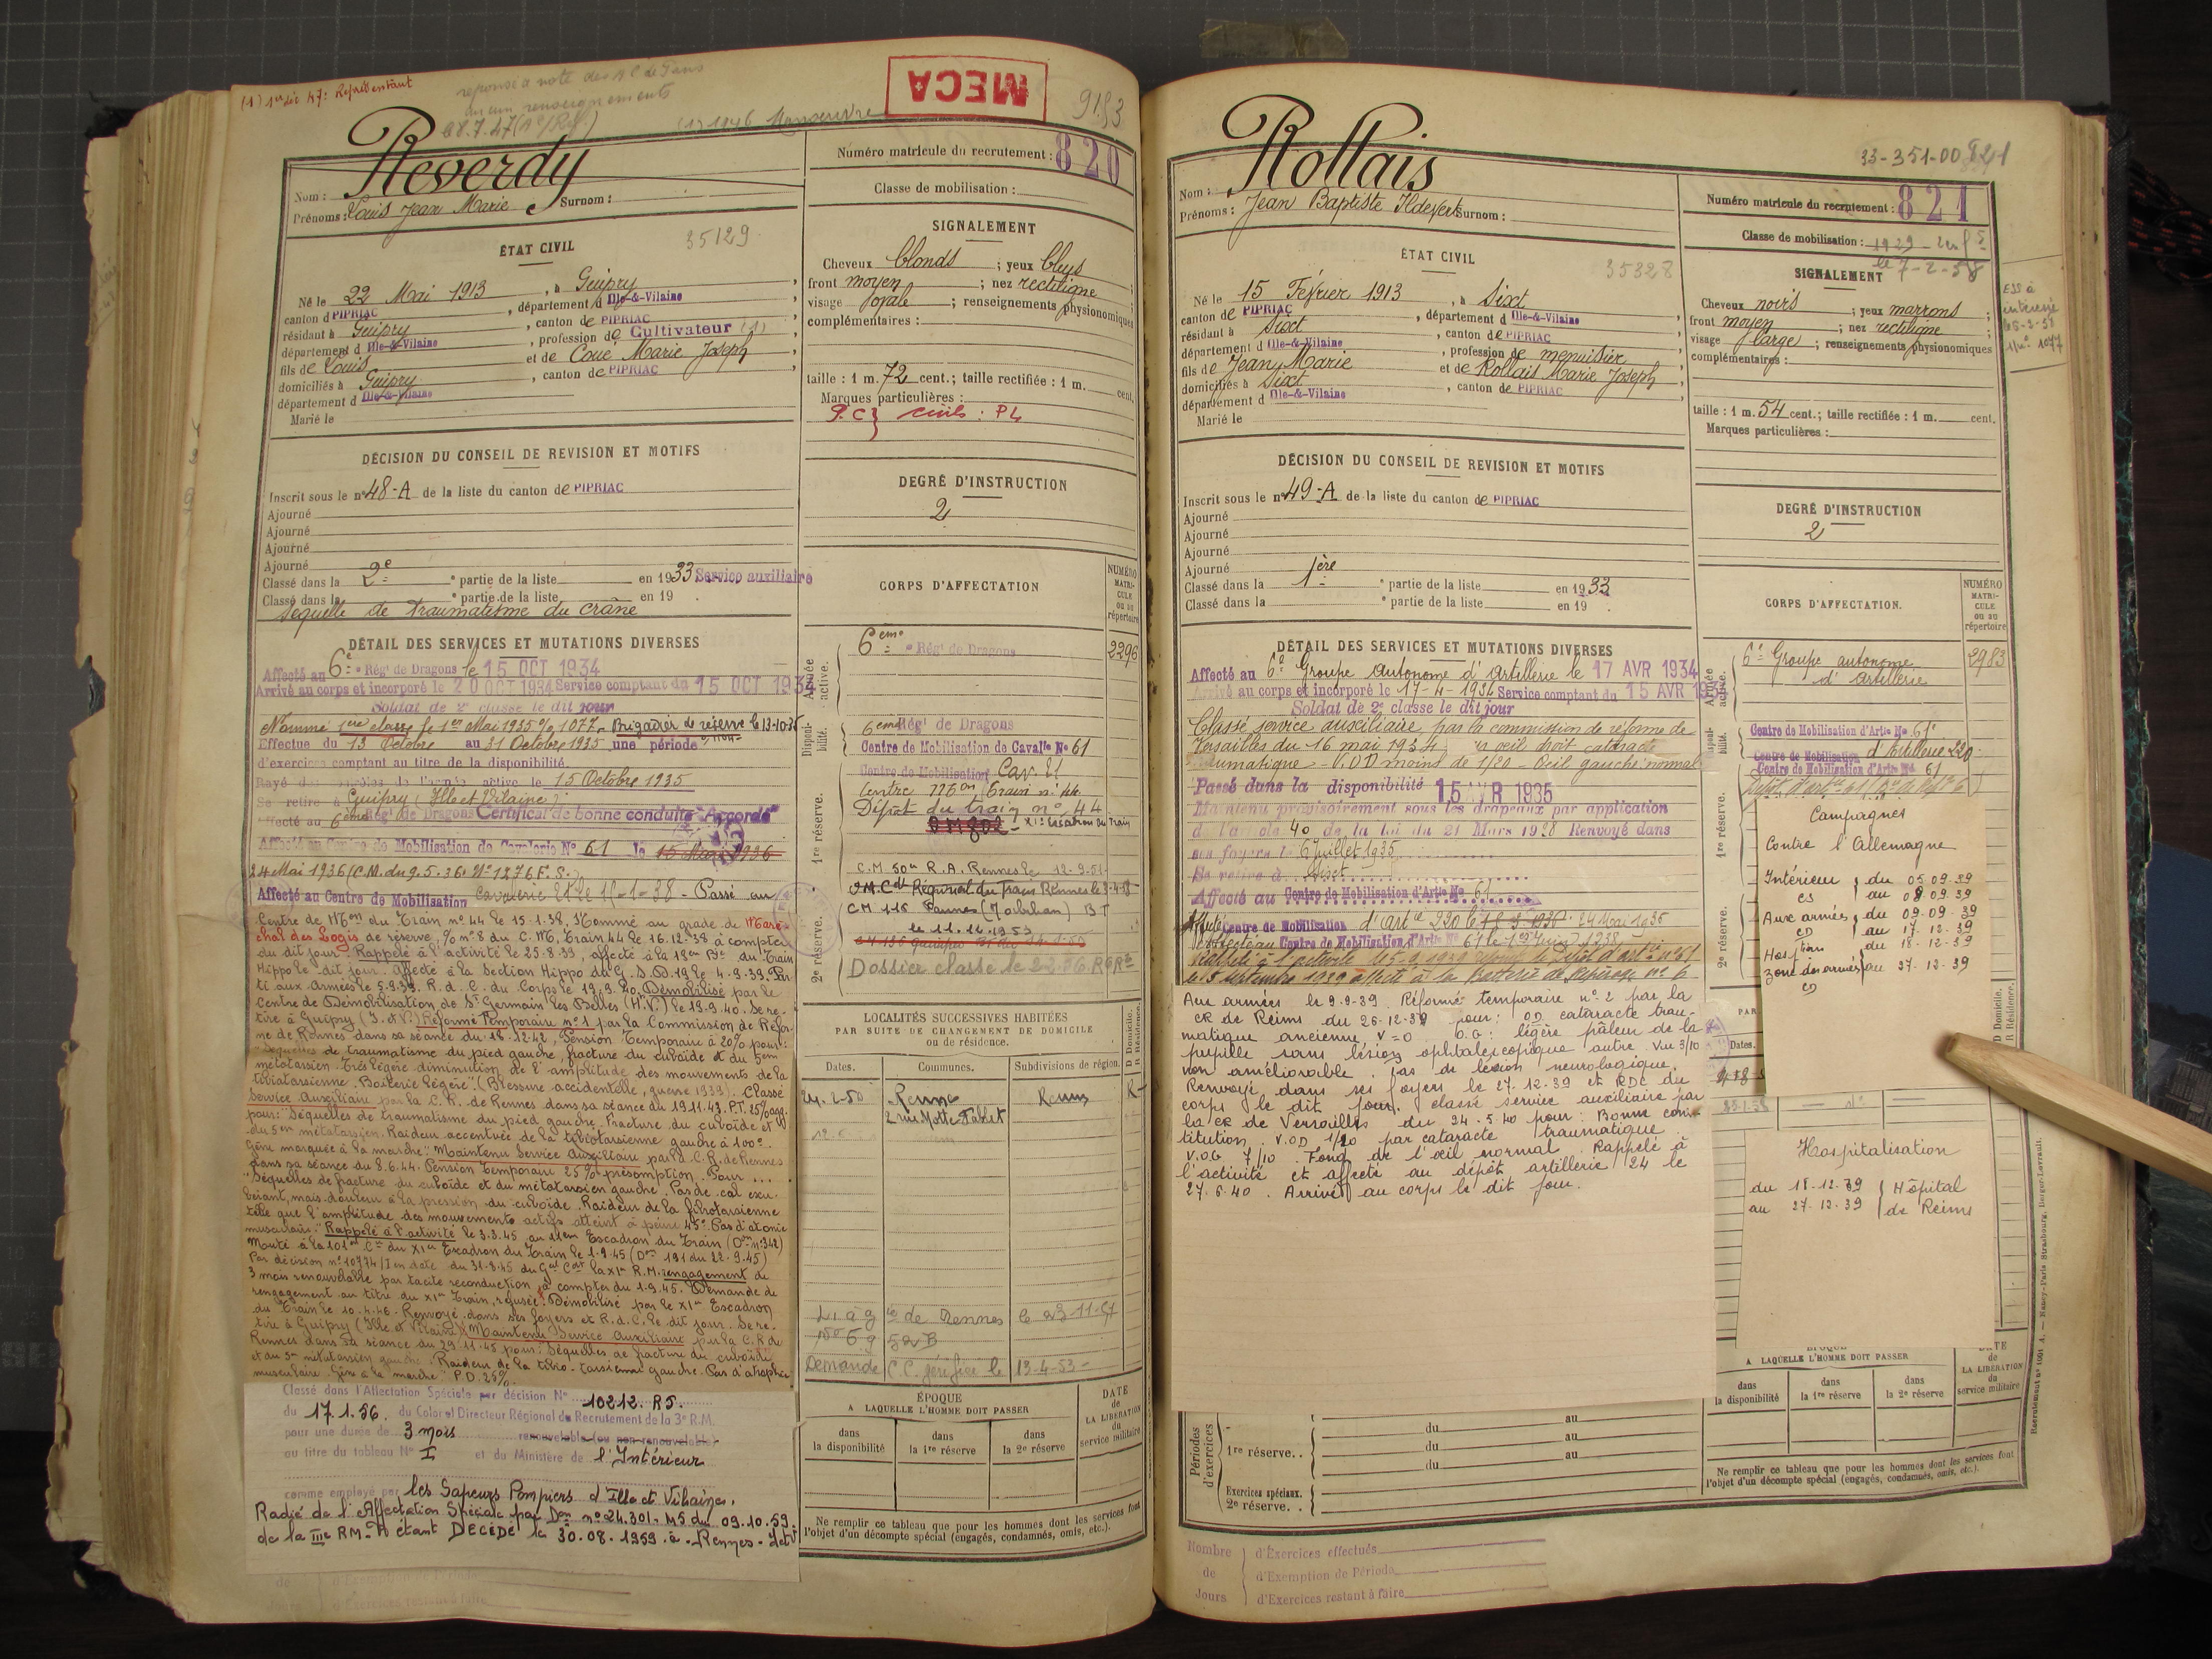 (1) 1er déc 47: Représentant
reponse a note des
aucun renseignements
MECA
9183
Reverdy
Nom :
Prénoms : Louis Jean Marie Surnom :
ÉTAT CIVIL
35129
Né le 22 Mai 1913, à Guipry,
canton d PIPRIAC, département d Ille-&-Vilaine
résidant à Guipry, canton de PIPRIAC
département d Ille-&-Vilaine, profession de Cultivateur (1)
fils de Louis et de Coue Marie Joseph,
domiciliés à Guipry, canton de PIPRIAC
département d Ille-&-Vilaine
Marié le
DÉCISION DU CONSEIL DE REVISION ET MOTIFS
Inscrit sous le nº 48-A de la liste du canton de PIPRIAC
Ajourné
Ajourné
Ajourné
Ajourné
Classé dans la 2e partie de la liste en 1933 Service auxiliaire
Classé dans la partie de la liste en 19
Sequelle de traumatisme du crâne
DÉTAIL DES SERVICES ET MUTATIONS DIVERSES
Affecté au 6e Régt de Dragons le 15 OCT 1934
Arrivé au corps et incorporé le 20 OCT 1934 Service comptant du 15 OCT 1934
Soldat de 2e classe le dit jour
Nommé 1ère classe le 1er Mai 1935 % 1077. Brigadier de réserve le 13.10.35
Effectue du 13 Octobre au 31 Octobre 1935 une période
d'exercices comptant au titre de la disponibilité.
Rayé des contrôles de l'armée active le 15 Octobre 1935
Se retire à Guipry (Ille et Vilaine)
Affecté au 6ème Régt de Dragons Certificat de bonne conduite "Accordé"
Affecté au Centre de Mobilisation de Cavalerie Nº 61 le 15 Mai 1936
24 Mai 1936 (C.M. du 9.5.36 Nº 1276 F.S.)
Affecté au Centre de Mobilisation Cavalerie 21 le 15-1-38 - Passé au
Centre de Mon du Train nº 44 le 15.1.38. Nommé au grade de Maré-
chal des Logis de réserve, % nº 8 du C.M. Train 44 le 16.12.38 à compter
du dit jour. Rappelé à l'activité le 25.8.39, affecté à la 18em Bie du Train
Hippo le dit jour. Affecté à la Section Hippo du G.S.D. 19 le 4.9.39. Par-
ti aux Armées le 5.9.39. R.d.C. du Corps le 19.9.40. Démobilisé par le
Centre de Démobilisation de St Germain les Belles (H.V.) le 19.9.40. Se re-
tire à Guipry (I. et V.) Réformé Temporaire nº 1 par la Commission de Réfor-
me de Rennes dans sa séance du 18.12.42, Pension Temporaire à 20% pour:
"Séquelles de traumatisme du pied gauche, fracture du cuboïde et du 5em
métatarsien. Très légère diminution de l'amplitude des mouvements de la
tibiotarsienne. Boiterie légère". (Blessure accidentelle, guerre 1939). Classé
Service Auxiliaire par la C.R. de Rennes dans sa séance du 19.11.43. P.T. 25% agg.
pour: "Séquelles de traumatisme du pied gauche. Fracture du cuboïde et
du 5em métatarsien. Raideur accentuée de la tibiotarsienne gauche à 100°.
Gêne marquée à la marche". Maintenu Service Auxiliaire par la C.R. de Rennes
dans sa séance du 8.6.44. Pension Temporaire 25% présomption. Pour ...
"Séquelles de fracture du cuboïde et du métatarsien gauche. Pas de cal exu-
bérant, mais douleur à la pression du cuboïde. Raideur de la tibiotarsienne
telle que l'amplitude des mouvements actifs atteint à peine 45°. Pas d'atonie
musculaire". Rappelé à l'activité le 3.3.45 au 11em Escadron du Train (Don nº 342)
Muté à la 101em Cie du XIem Escadron du Train le 1.9.45 (Don 191 du 22.9.45)
Par décision nº 10974/I en date du 31.8.45 du Gal Cdt la XIem R.M. engagement de
3 mois renouvelable par tacite reconduction à compter du 1.9.45. Demande de
rengagement au titre du XIem Train, refusée. Démobilisé par le XIem Escadron
du Train le 10.4.46. Renvoyé dans ses foyers et R.d.C. le dit jour. Se re-
tire à Guipry (Ille et Vilaine) Maintenu Service Auxiliaire par la C.R. de
Rennes dans sa séance du 29.11.45 pour: "Séquelles de fracture du cuboïde
et du 5em métatarsien gauche. Raideur de la tibio-tarsienne gauche. Pas d'atrophie
musculaire. Gêne à la marche". P.D. 25%.
Classé dans l'Affectation Spéciale par décision Nº 10212. RS.
du 17.1.56. du Colonel Directeur Régional du Recrutement de la 3e R.M.
pour une durée de 3 mois renouvelable (ou non renouvelable)
au titre du tableau Nº I et du Ministère de l'Intérieur
comme employé par les Sapeurs Pompiers d'Ille et Vilaine.
Radié de l'Affectation Spéciale par Don nº 24.301-MS du 09.10.59.
de la IIIe RM - étant DECEDE le 30.08.1959 à Rennes - I et V
Numéro matricule du recrutement : 820
Classe de mobilisation :
SIGNALEMENT
Cheveux blonds ; yeux bleus
front moyen ; nez rectiligne
visage ovale ; renseignements physionomiques
complémentaires :
taille : 1 m. 72 cent.; taille rectifiée : 1 m. cent.
Marques particulières :
P.C } civils : PL
DEGRÉ D'INSTRUCTION
2
CORPS D'AFFECTATION
NUMÉRO MATRICULE OU AU répertoire
Armée active.
6ème Régt de Dragons 2296
Disponibilité.
6ème Régt de Dragons
Centre de Mobilisation de Cavalie Nº 61
1re réserve.
Centre de Mobilisation Cav 21
Centre Mon Train nº 44
Dépôt du train nº 44
XIe Escadron du Train
C.M. 50e R.A. Rennes le 12-9-51
CM 116 Vannes (Morbihan) BT
le 11.12.1953
2e réserve.
Dossier classé le
LOCALITÉS SUCCESSIVES HABITÉES
PAR SUITE DE CHANGEMENT DE DOMICILE
ou de résidence.
Dates. Communes. Subdivisions de région. D Domicile. R Résidence.
24-2-50 Rennes Rennes R
2 rue Motte Fablet
de Rennes le 23-11-51
Demande C.C. 13-4-53-
ÉPOQUE
A LAQUELLE L'HOMME DOIT PASSER
DATE de LA LIBÉRATION du service militaire
dans la disponibilité dans la 1re réserve dans la 2e réserve
Ne remplir ce tableau que pour les hommes dont les services font
l'objet d'un décompte spécial (engagés, condamnés, omis, etc.).
Rollais
33-351-00821
Nom :
Prénoms : Jean Baptiste Ildevert Surnom :
ÉTAT CIVIL
35328
Né le 15 Février 1913, à Sixt
canton de PIPRIAC, département d Ille-&-Vilaine
résidant à Sixt, canton de PIPRIAC
département d Ille-&-Vilaine, profession de menuisier
fils de Jean Marie et de Rollais Marie Joseph,
domiciliés à Sixt, canton de PIPRIAC
département d Ille-&-Vilaine
Marié le
DÉCISION DU CONSEIL DE REVISION ET MOTIFS
Inscrit sous le nº 49-A de la liste du canton de PIPRIAC
Ajourné
Ajourné
Ajourné
Ajourné
Classé dans la 1ère partie de la liste en 1933
Classé dans la partie de la liste en 19 .
DÉTAIL DES SERVICES ET MUTATIONS DIVERSES
Affecté au 6e Groupe autonome d'Artillerie le 17 AVR 1934
Arrivé au corps et incorporé le 17-4-1934 Service comptant du 15 AVR 1934
Soldat de 2e classe le dit jour
Classé service auxiliaire par la commission de réforme de
Versailles du 16 mai 1934 oeil droit cataracte
traumatique - V.OD moins de 1/20 - Oeil gauche normal
Passé dans la disponibilité 15 AVR 1935
Maintenu provisoirement sous les drapeaux par application
de l'article 40 de la loi du 21 Mars 1928 Renvoyé dans
ses foyers le 6 Juillet 1935
Se retire à Sixt
Affecté au Centre de Mobilisation d'Artie Nº 61
Affecté Centre de Mobilisation d'Artie 220 le 24 Mai 1936
Affecté au Centre de Mobilisation d'Artie Nº 61
Rappelé à l'activité le 5-9-1939
le 5 septembre 1939 affecté à la Batterie de Repérage nº 6
Aux armées le 9.9.39. Réformé temporaire nº 2 par la
CR de Reims du 26-12-39 pour: O.D cataracte trau-
matique ancienne, V=0 O.G: légère pâleur de la
pupille sans lésion ophtalmoscopique autre. Vue 3/10
non améliorable. Pas de lésion neurologique.
Renvoyé dans ses foyers le 27.12.39 et RDC du
corps le dit jour. classé service auxiliaire par
la CR de Versailles du 24.5.40 pour: Bonne cons-
titution. V.OD 1/20 par cataracte traumatique.
V.OG 7/10. Fond de l'oeil normal. Rappelé à
l'activité et affecté au dépôt artillerie 24 le
27.6.40. Arrivé au corps le dit jour.
Périodes d'exercices
1re réserve..
du au
du au
du au
Exercices spéciaux.
2e réserve. .
Nombre de Jours
d'Exercices effectués
d'Exemption de Période
d'Exercices restant à faire
Numéro matricule du recrutement : 821
Classe de mobilisation : 1929
le 7-2-58
SIGNALEMENT
Cheveux noirs ; yeux marrons
front moyen ; nez rectiligne
visage large ; renseignements physionomiques
complémentaires :
taille : 1 m. 54 cent.; taille rectifiée : 1 m. cent.
Marques particulières :
DEGRÉ D'INSTRUCTION
2
CORPS D'AFFECTATION.
NUMÉRO MATRICULE OU AU répertoire
6e Groupe autonome d'Artillerie 2983
Centre de Mobilisation d'Artie Nº 61
Centre de Mobilisation d'Artillerie 220
Centre de Mobilisation d'Artie Nº 61
1re réserve.
2e réserve.
Campagnes
Contre l'Allemagne
Intérieur } du 05.09.39
CS au 08.09.39
Aux armées } du 09-09-39
CD au 17-12-39
Hospon } du 18-12-39
Zone des armées au 27-12-39
CD
Hospitalisation
du 18-12-39 } Hôpital
au 27-12-39 } de Reims
A LAQUELLE L'HOMME DOIT PASSER
DATE de LA LIBÉRATION du service militaire
dans la disponibilité dans la 1re réserve dans la 2e réserve
Ne remplir ce tableau que pour les hommes dont les services font
l'objet d'un décompte spécial (engagés, condamnés, omis, etc.).
Recrutement nº 1001 A. — Nancy-Paris Strasbourg, Berger-Levrault.